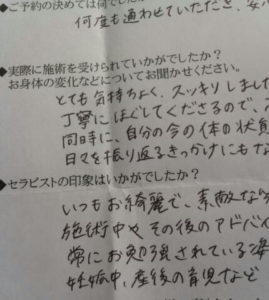 ●ご予約の決めては何でした
何度も通わせていただき、安
◆実際に施術を受けられていかがでしたか？
お身体の変化などについてお聞かせください。
とても気持ちよく、スッキリしました
丁寧にほぐしてくださるので、
同時に、自分の今の体の状
日々を振り返るきっかけにもな
◆セラピストの印象はいかがでしたか？
いつもお綺麗で、素敵な
施術中や、その後のアドバイ
常にお勉強されている姿
妊娠中、産後の育児など